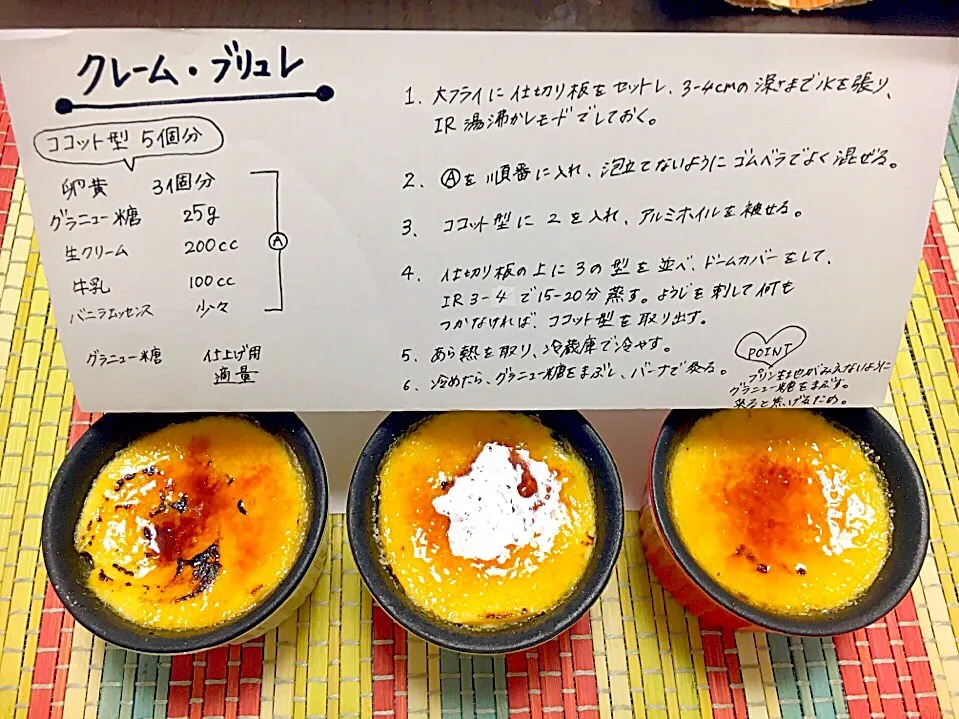 クレーム・ブリュレ
ココット型 5個分
卵黄 3個分
グラニュー糖 25g
生クリーム 200cc
牛乳 100cc
バニラエッセンス 少々
Ⓐ
グラニュー糖 仕上げ用
適量
1. 大フライに仕切り板をセットし、3-4cmの深さまで水を張り、
IR湯沸かしモードでしておく。
2. Ⓐを順番に入れ、泡立てないようにゴムベラでよく混ぜる。
3. ココット型に2を入れ、アルミホイルを被せる。
4. 仕切り板の上に3の型を並べ、ドームカバーをして、
IR3-4で15-20分蒸す。ようじを刺して何も
つかなければ、ココット型を取り出す。
5. あら熱を取り、冷蔵庫で冷やす。
6. 冷めたら、グラニュー糖をまぶし、バーナで炙る。
POINT
プリン生地がみえないように
グラニュー糖をまぶす。
炙ると焦げるため。